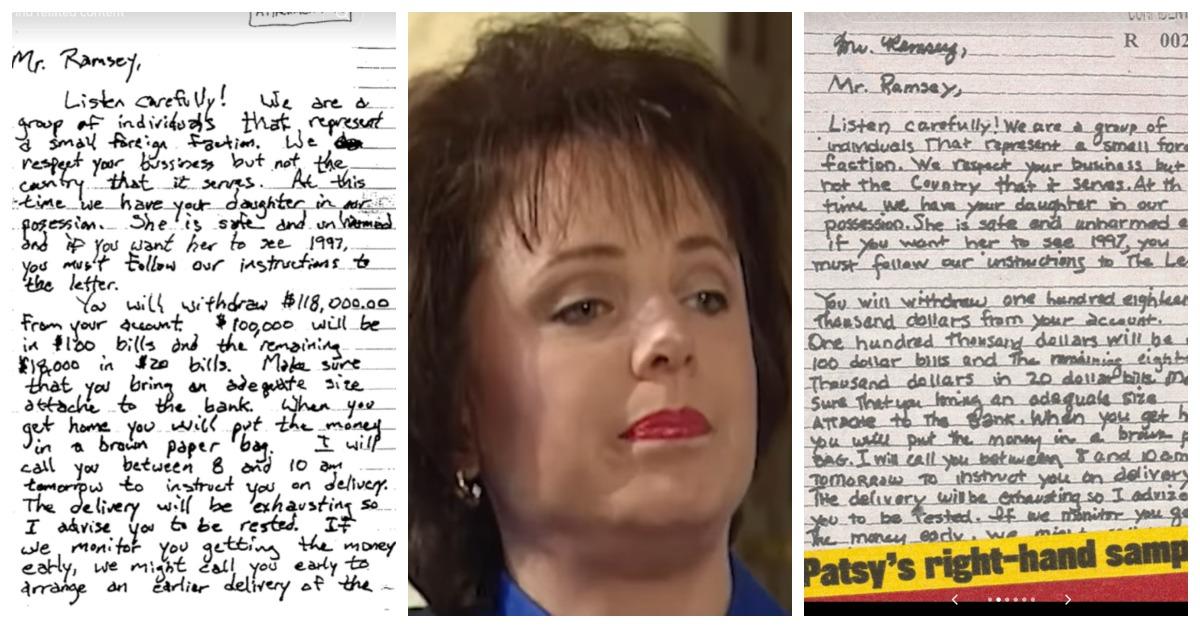 related content
Mr. Ramsey,
Listen carefully! We are a
group of individuals that represent
a small foreign faction. We
respect your bussiness but not the
country that it serves. At this
time we have your daughter in our
posession. She is safe and unharmed
and if you want her to see 1997,
you must follow our instructions to
the letter.
You will withdraw $118,000.00
from your account. $100,000 will be
in $100 bills and the remaining
$18,000 in $20 bills. Make sure
that you bring an adequate size
attache to the bank. When you
get home you will put the money
in a brown paper bag. I will
call you between 8 and 10 am
tomorrow to instruct you on delivery.
The delivery will be exhausting so
I advise you to be rested. If
we monitor you getting the money
early, we might call you early to
arrange an earlier delivery of the
R 002
Mr. Ramsey,
Mr. Ramsey,
Listen carefully! We are a group of
individuals That represent a small
faction. We respect your business but
not the Country that it serves. At
time we have your daughter in our
possession. She is safe and unharmed
if you want her to see 1997, you
must follow our instructions to The
You will withdraw one hundred
Thousand dollars from your account.
One hundred Thousand dollars will be
100 dollar bills and The remaining
Thousand dollars in 20 dollar bills.
sure That you bring an adequate size
ATTACHE to The Bank. When you get
you will put the money in a brown
BAG. I will call you between 8 and 10 am
TOMORROW to instruct you on delivery
The delivery will be exhausting so I advize
you to be rested. If we monitor you
The money early, we might
Patsy's right-hand